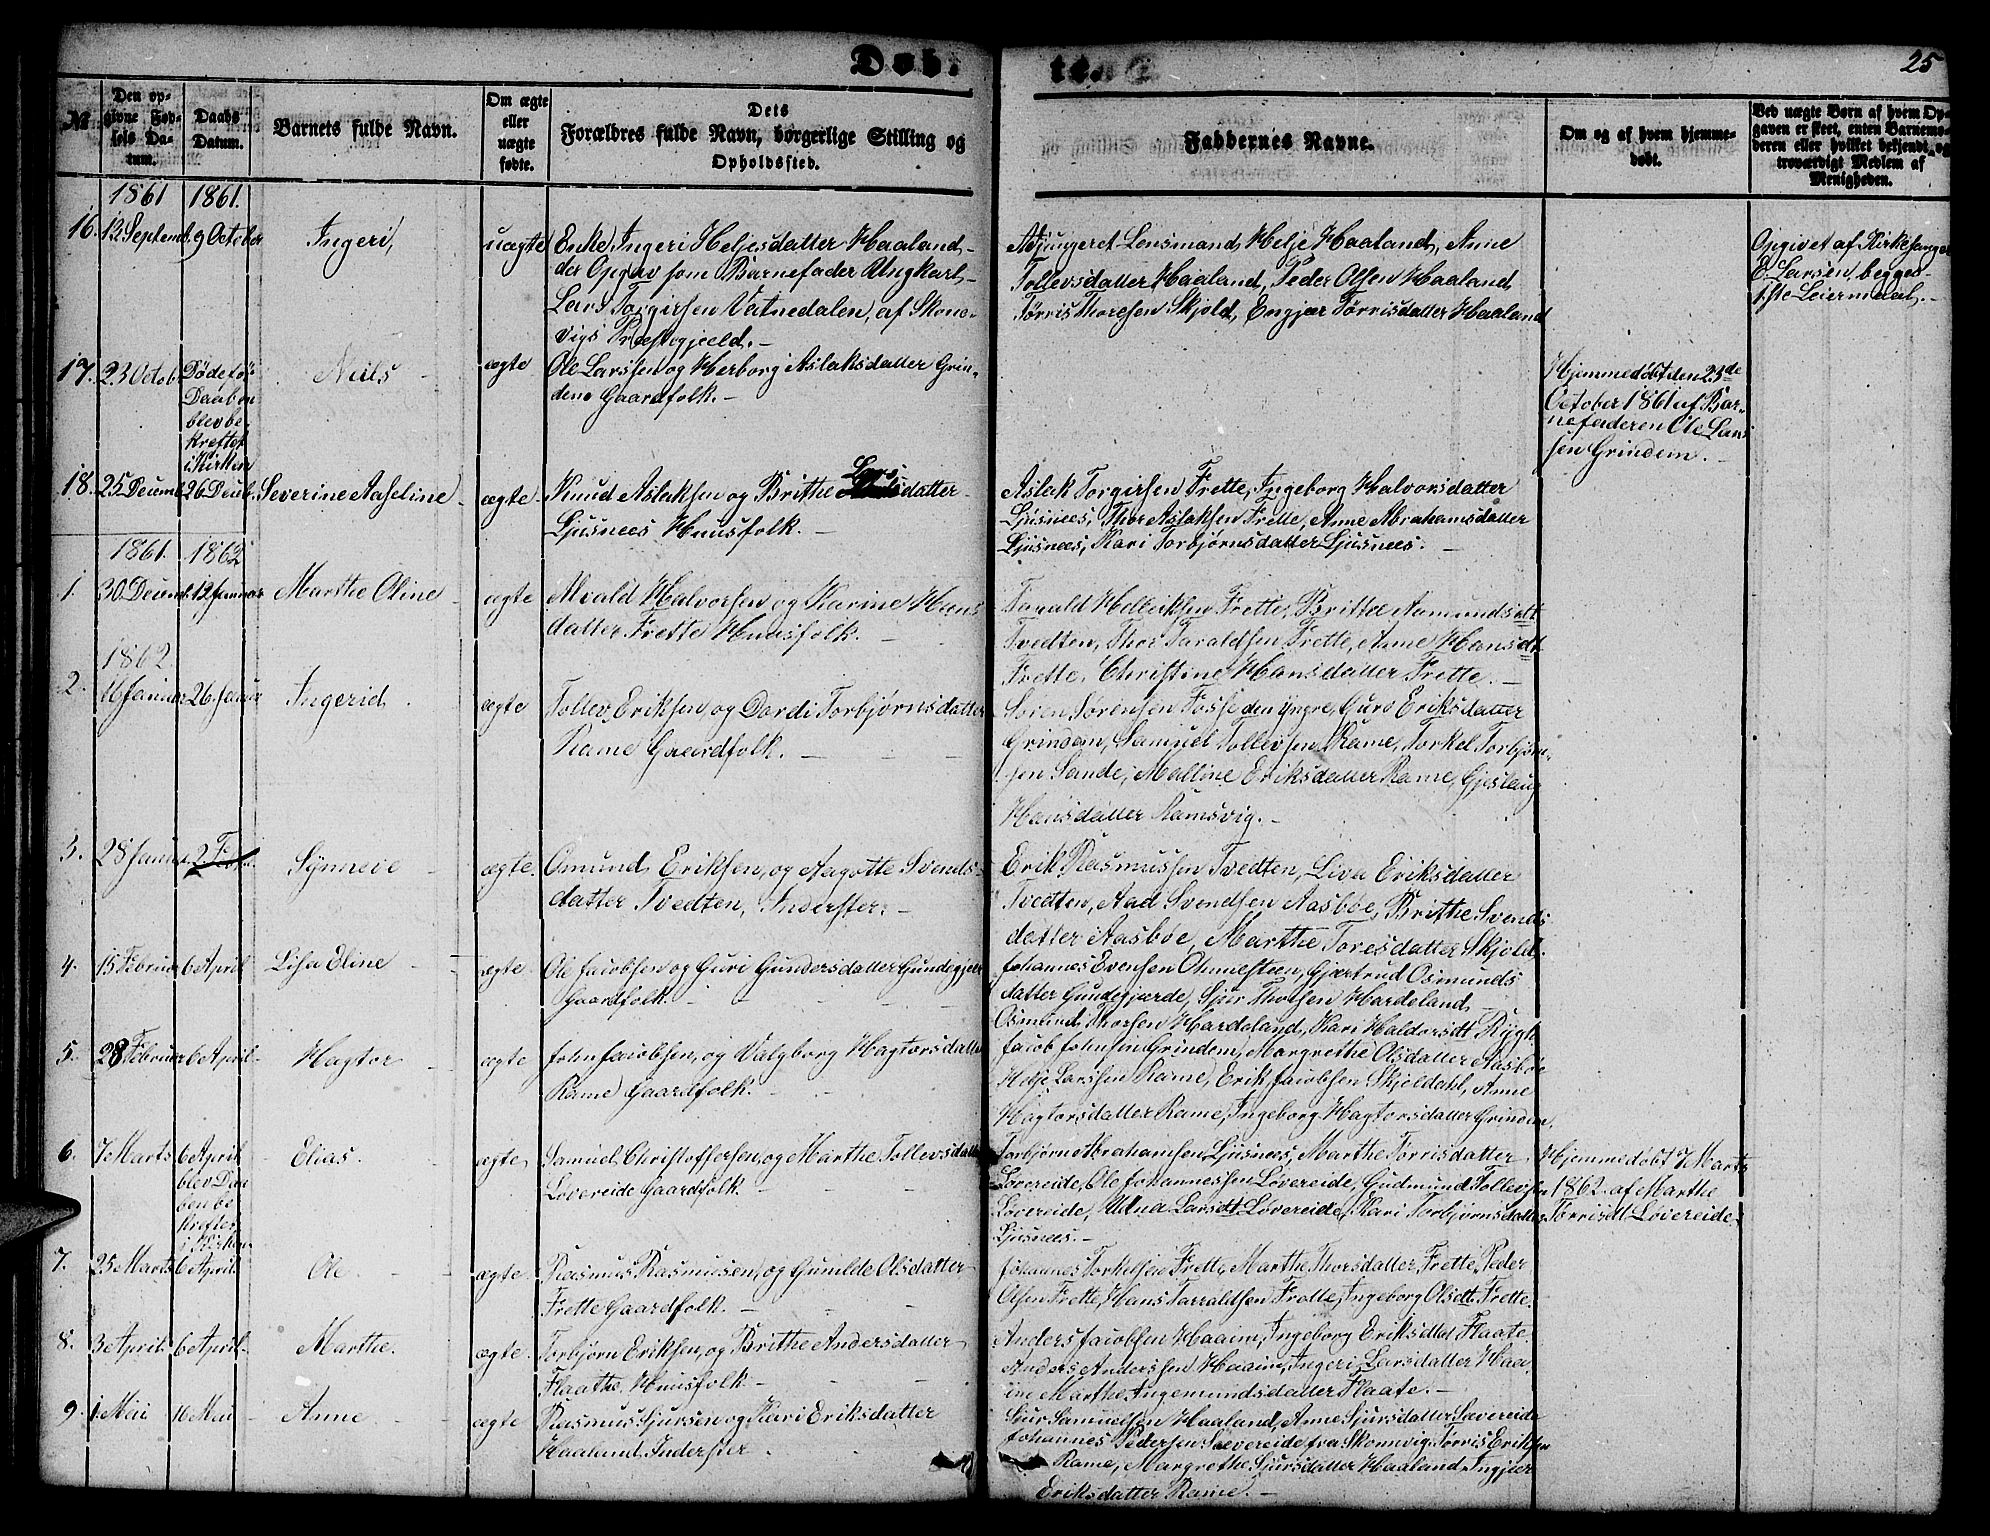 Døb-
te.
25
№
Den op-
givne Fød-
sels Da-
tum.
Daabs
Datum.
Barnets fulde Navn.
Om ægte
eller
uægte
fødte.
Dets
Forældres fulde Navn, borgerlige Stilling og
Opholdssted.
Faddernes Navne.
Om og af hvem hjemme-
døbt.
Ved uægte Børn af hvem Op-
gaven er skeet, enten Barnemo-
deren eller hvilket bekjendt og
troværdigt Medlem af
Menigheden.
1861 1861.
16. 13 Septemb. 9 October Ingeri, uægte
Enke, Ingeri Heljesdatter Haaland,
der Opgav som Barnefader Ungkarl,
Lars Torgirsen Vatnedalen, af Skone-
vigs Præstegjeld. -
Adjungeret Lensmand, Helje Haaland, Anne
Tollevsdatter Haaland, Peder Olsen Haaland
Tørris Thoresen Skjold, Engjær Tørrisdatter Haaland
Opgivet af Kirkesanger
E. Larsen, begges
1ste Leiermaal. -
17. 23 Octob. Døde før
Daaben
blev be-
kræftet
i Kirken
Neils ægte
Ole Larssen og Herborg Aslaksdatter Grin-
dene Gaardfolk. -
Hjemmedøbt den 23de
October 1861 af Bar-
nefaderen Ole Lars
sen Grindem. -
18. 25 Decemb. 26 Decb. Severine Aaseline - ægte
Knud Aslaksen og Brithe Lars datter
Ljusnees Huusfolk. -
Aslak Torgirsen Frette, Ingeborg Halvorsdatter
Ljusnees, Thor Aslaksen Frette, Anne Abrahamsdatter
Ljusnees, Kari Torbjørnsdatter Ljusnees. -
1861. 1862
1. 30 Decemb. 12 Januar Marthe Oline - ægte
Alvald Halvorsen og Karine Hans
datter Frette Huusfolk. -
Tarald Helliksen Frette, Brithe Aamundsdtt
Tvedten, Thor Taraldsen Frette, Anne Hansdt
Frette, Christine Hansdatter Frette. -
1862
2. 16 Januar 26 Januar Ingerid. ægte
Tollev Eriksen, og Dordi Torbjørnsdatter
Rame Gaardfolk. -
Søren Sørensen Fosse den yngre, Guro Eriksdatter
Grindem, Samuel Tollevsen Rame, Torkel Torbjørn-
sen Sande, Malline Eriksdatter Rame, Gjeslaug
Hansdatter Ramsvig. -
3. 28 Januar 2 Febr. Synneve - ægte
Omund Eriksen, og Aagotte Svends-
datter Tvedten, Inderster. -
Erik Rasmussen Tvedten, Liva Eriksdatter
Tvedten, Aad Svendsen Aasbøe, Brithe Svends
datter Aasbøe, Marthe Toresdatter Skjold.
4. 15 Februar 6 April Lisa Eline ægte
Ole Jacobsen og Guri Gundersdatter Gundegjær
Gaardfolk. -
Johannes Evensen Ommesteen, Gjærtrud Osmunds
datter Gundegjærde, Sjur Thorsen Hardeland,
Osmund Thorsen Hardeland, Kari Haldorsdt Rygh.
5. 28 Februar 6 April Hagtor ægte
John Jacobsen, og Valgborg Hagtorsdatter
Rame Gaardfolk. -
Jacob Johnsen Grindem, Margrethe Olsdatter Aasbøe
Helje Larssen Rame, Erik Jacobsen Skjeldahl, Anne
Hagtorsdatter Rame, Ingeborg Hagtorsdatter Grindem.
6. 7 Marts 6 April
blev Daa
ben be
kræftet
i Kirken
Elias. ægte
Samuel Christoffersen, og Marthe Tollevsdatter
Løvereide Gaardfolk. -
Torbjørn Abrahamsen Ljusnees, Marthe Tørrisdatter
Løvereide, Ole Johannessen Løvereide, Gudmund Tollevsen
Løvereide, Udna Larsdt Løvereide, Kari Torbjørnsdatter
Ljusnees. -
Hjemmedøbt 7 Marts
1862. af Marthe
Tørrisdt Løvereide.
7. 25 Marts 6 April Ole ægte
Rasmus Rasmusen, og Gunilde Olsdatter
Frette Gaardfolk. -
Johannes Torkelsen Frette, Marthe Thorsdatter Frette, Peder
Olsen Frette, Hans Tarraldsen Frette, Ingeborg Olsdt. Frette.
8. 3 April 6 April. Marthe. ægte.
Torbjørn Eriksen, og Brithe Andersdatter
Flaathe, Huusfolk. -
Anders Jacobsen Haaim, Ingeborg Eriksdtat Flaate.
Anders Anderssen Haaim, Ingeri Larsdatter Haa
im Marthe Ingemundsdatter Flaate. -
9. 1. Mai 16 Mai Anne ægte
Rasmus Sjursen, og Kari Eriksdatter
Haaland, Inderster.
Sjur Samuelsen Haaland, Anne Sjursdatter Løvereide
Johannes Pedersen Løvereide fra Skonnevig, Tørris Eriksen
Rame, Margrethe Sjursdatter Haaland, Ingjær
Eriksdatter Rame. -